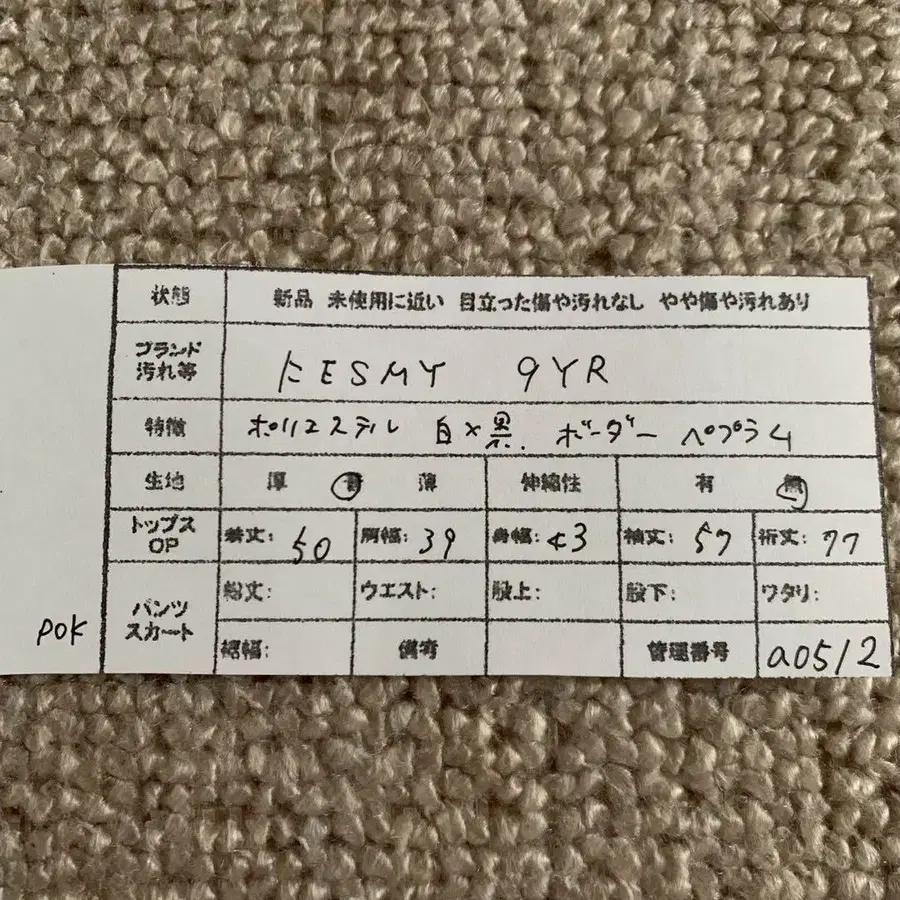 状態 新品 未使用に近い 目立った傷や汚れなし やや傷や汚れあり
ブランド
汚れ等 KESMY 9YR
特徴 ポリエステル 白×黒. ボーダー ペプラム
生地 厚 普 薄 伸縮性 有 無
トップス
OP 着丈: 50 胸幅: 39 身幅: 43 袖丈: 57 裄丈: 77
パンツ
スカート 総丈: ウエスト: 股上: 股下: ワタリ:
裾幅: 備考 管理番号 a0512
POK